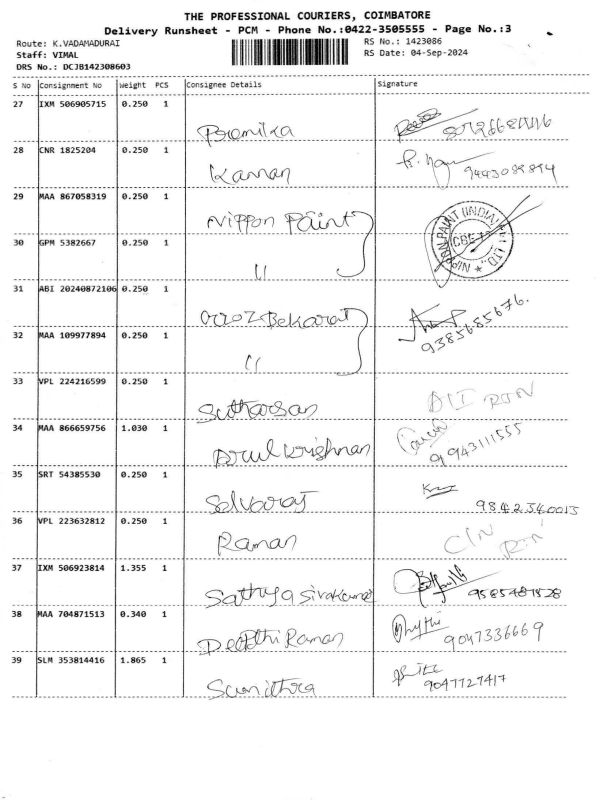 THE PROFESSIONAL COURIERS, COIMBATORE
Delivery Runsheet - PCM - Phone No.:0422-3505555 - Page No.:3
Route: K.VADAMADURAI
Staff: VIMAL
DRS No.: DCJB142308603
RS No.: 1423086
RS Date: 04-Sep-2024
S No Consignment No Weight PCS Consignee Details Signature
27 IXM 506905715 0.250 1
Premika
28 CNR 1825204 0.250 1
Kannan 9443089894
29 MAA 867058319 0.250 1
Nippon Paint
NIPPON PAINT (INDIA) PVT. LTD.
CBE
30 GPM 5382667 0.250 1
"
31 ABI 20240872106 0.250 1
Bekarat 9385685676.
32 MAA 109977894 0.250 1
"
33 VPL 224216599 0.250 1
Sutharsan RTN
34 MAA 866659756 1.030 1
Arul Krishnan 9943111555
35 SRT 54385530 0.250 1
Selvaraj 9842340013
36 VPL 223632812 0.250 1
Raman RTN
37 IXM 506923814 1.355 1
Sathya Sivakumar
38 MAA 704871513 0.340 1
Raman 9047336669
39 SLM 353814416 1.865 1
Sunithra 9047727417